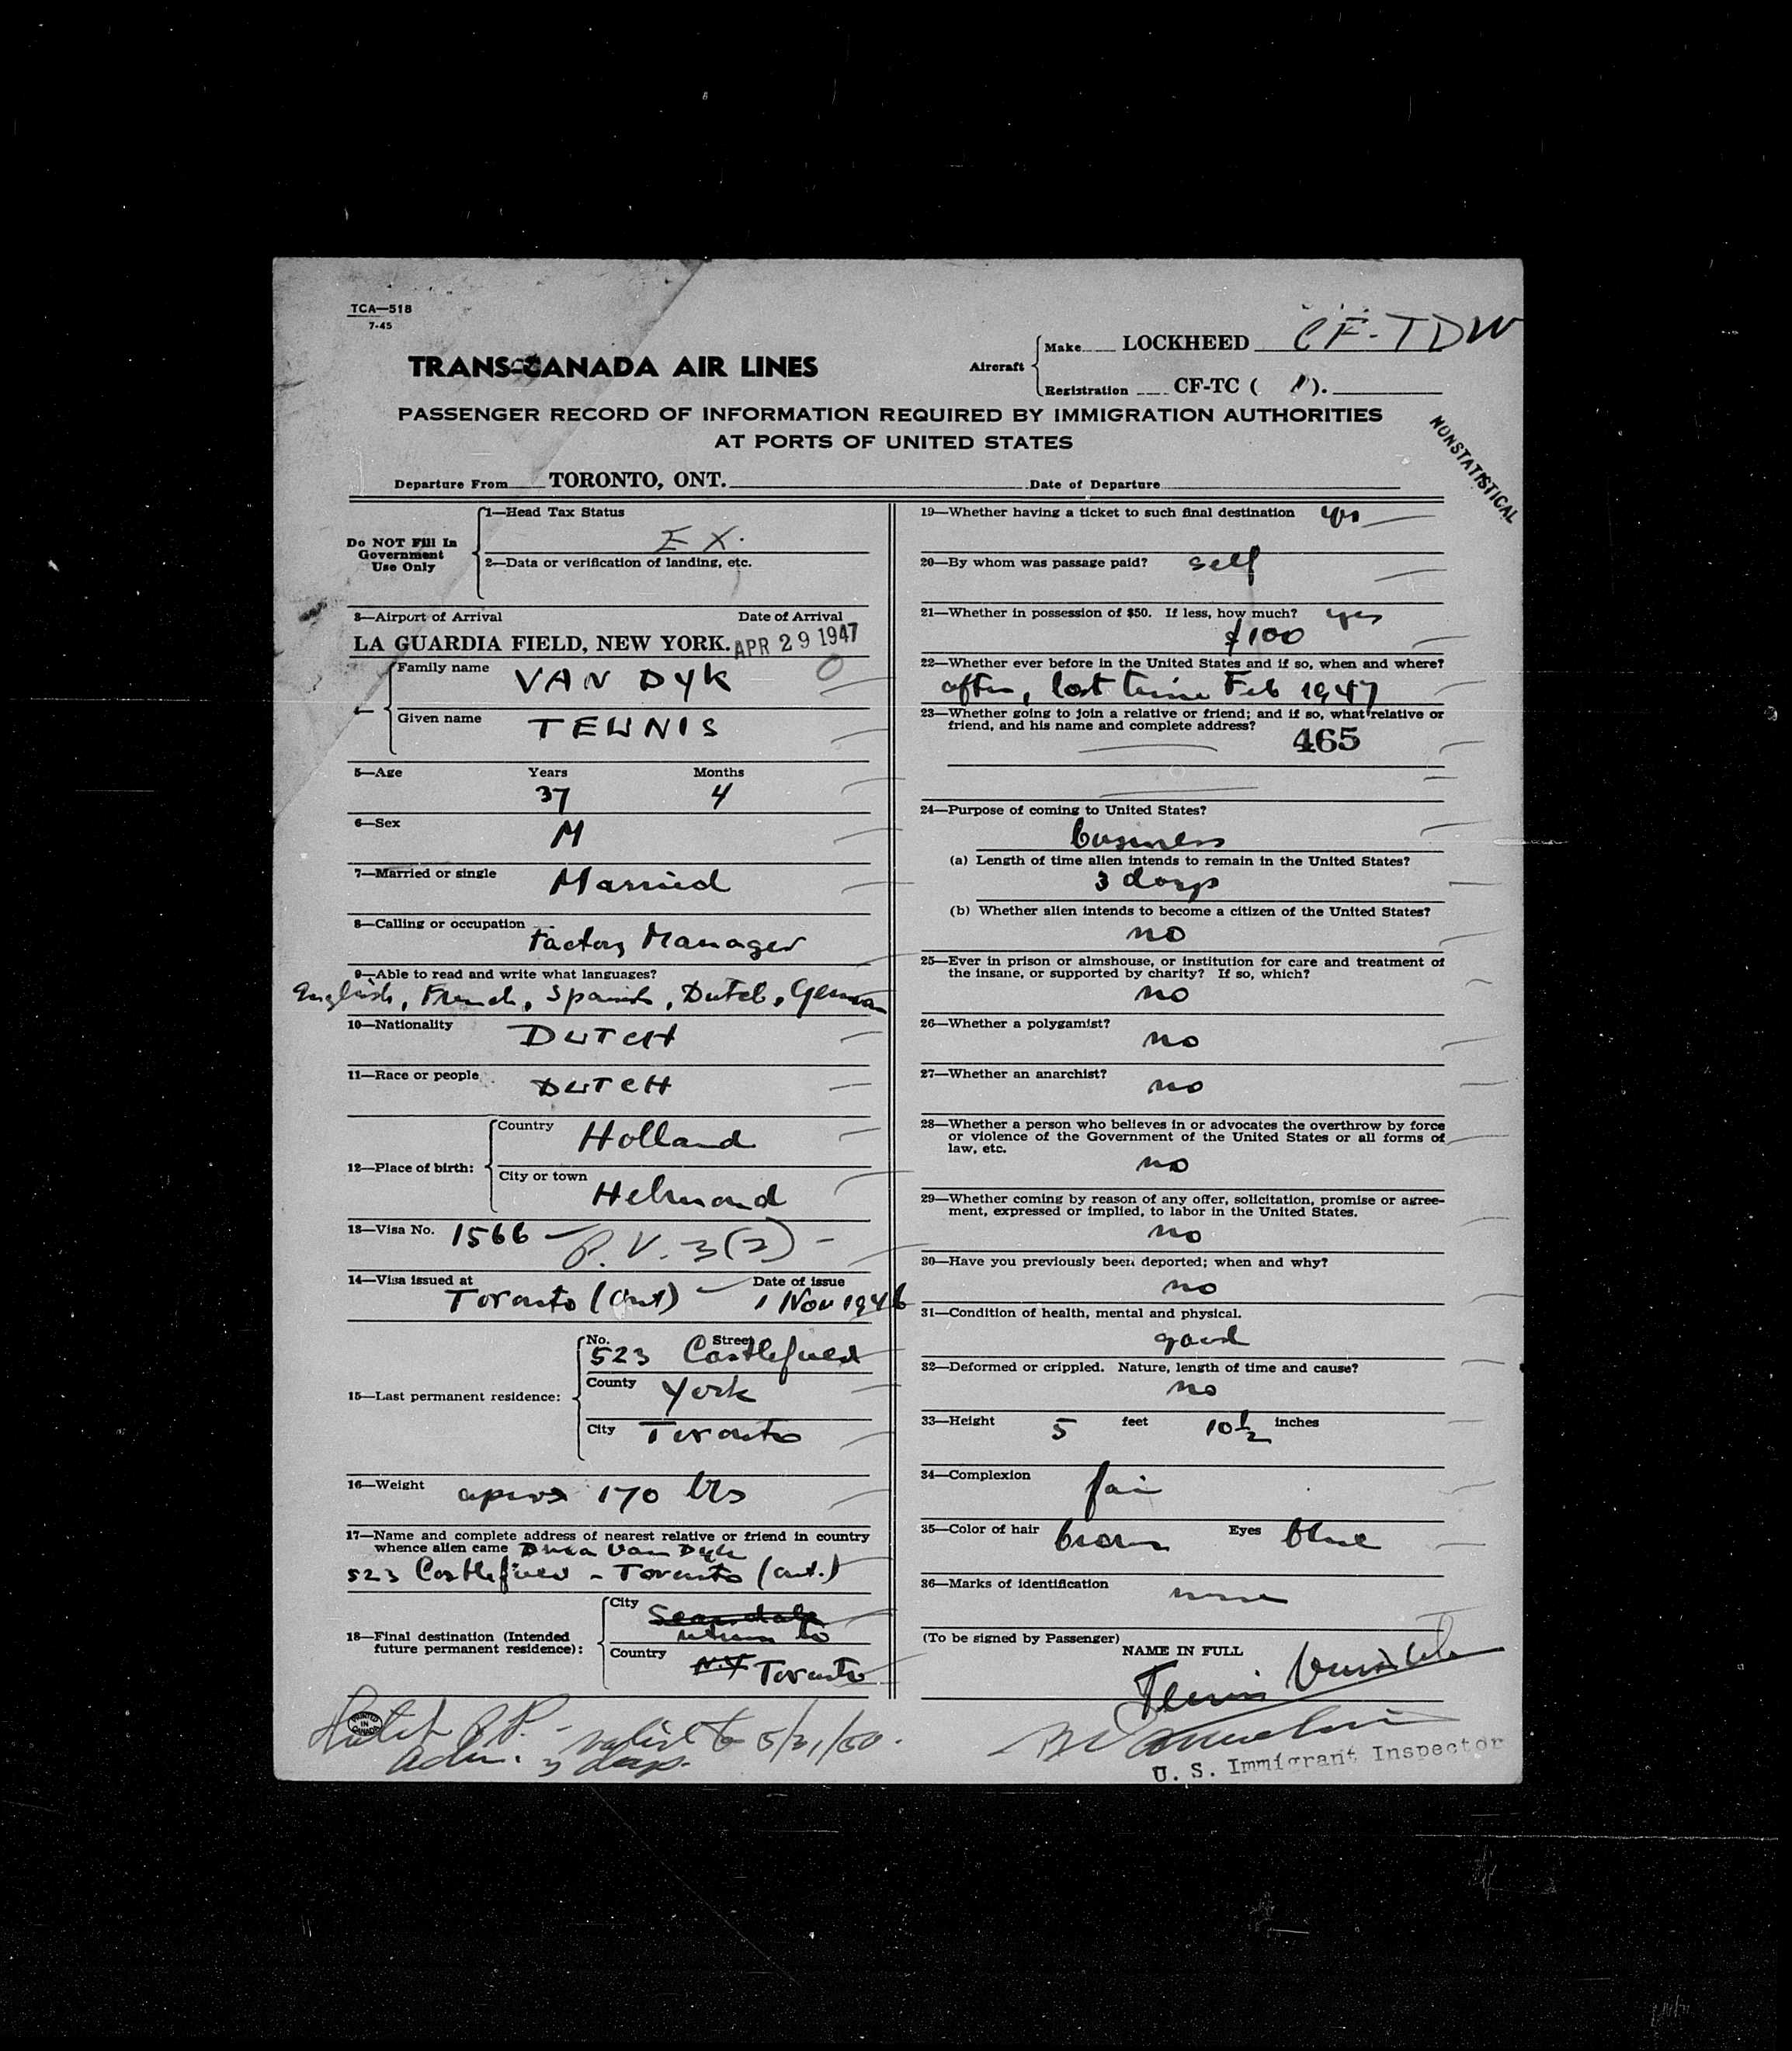 TCA—518
7-45
TRANS-CANADA AIR LINES
Aircraft
Make LOCKHEED CF-TDW
Registration CF-TC ( ).
PASSENGER RECORD OF INFORMATION REQUIRED BY IMMIGRATION AUTHORITIES
AT PORTS OF UNITED STATES
NONSTATISTICAL
Departure From TORONTO, ONT. Date of Departure
Do NOT Fill In
Government
Use Only
1—Head Tax Status
EX.
2—Data or verification of landing, etc.
3—Airport of Arrival Date of Arrival
LA GUARDIA FIELD, NEW YORK. APR 29 1947
4—
Family name VAN DYK
Given name TEUNIS
5—Age Years Months
37 4
6—Sex
M
7—Married or single Married
8—Calling or occupation
Factory Manager
9—Able to read and write what languages?
English, French, Spanish, Dutch, German
10—Nationality DUTCH
11—Race or people DUTCH
12—Place of birth:
Country Holland
City or town
Helmond
13—Visa No. 1566 — P.V. 3(2) —
14—Visa issued at Date of issue
Toronto (Ont) 1 Nov 1946
15—Last permanent residence:
No. Street
523 Castlefield
County York
City Toronto
16—Weight aprox 170 lbs
17—Name and complete address of nearest relative or friend in country
whence alien came Van Dyk
523 Castlefield - Toronto (Ont.)
18—Final destination (Intended
future permanent residence):
City Scarsdale
return to
Country N.Y Toronto
PRINTED
IN
CANADA
Dutch P.P. - valid to 5/31/50.
Adm. 3 days.
19—Whether having a ticket to such final destination yes
20—By whom was passage paid? self
21—Whether in possession of $50. If less, how much? yes
$100
22—Whether ever before in the United States and if so, when and where?
often, last time Feb 1947
23—Whether going to join a relative or friend; and if so, what relative or
friend, and his name and complete address?
465
24—Purpose of coming to United States?
business
(a) Length of time alien intends to remain in the United States?
3 days
(b) Whether alien intends to become a citizen of the United States?
no
25—Ever in prison or almshouse, or institution for care and treatment of
the insane, or supported by charity? If so, which?
no
26—Whether a polygamist?
no
27—Whether an anarchist?
no
28—Whether a person who believes in or advocates the overthrow by force
or violence of the Government of the United States or all forms of
law, etc.
no
29—Whether coming by reason of any offer, solicitation, promise or agree-
ment, expressed or implied, to labor in the United States.
no
30—Have you previously been deported; when and why?
no
31—Condition of health, mental and physical.
good
32—Deformed or crippled. Nature, length of time and cause?
no
33—Height 5 feet 10½ inches
34—Complexion fair
35—Color of hair brown Eyes blue
36—Marks of identification none
(To be signed by Passenger)
NAME IN FULL
Teunis van Dyk
U. S. Immigrant Inspector